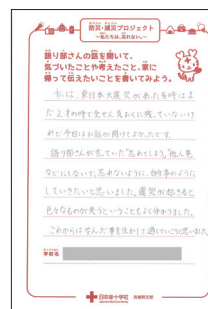 防災・減災プロジェクト
～私たちは、忘れない。～
語り部さんの話を聞いて、
気づいたことや考えたこと、家に
帰って伝えたいことを書いてみよう。
私は、東日本大震災があった当時はま
だ2才の時で全然気おくに残っていないけ
れど今日はお話が聞けてよかったです。
語り部さんが言っていた"忘れてしまう"他人事
などにしないで、忘れないように、自分事のように
していきたいと思いました。震災が起きると
色々なものが失うということもよく分かりました。
これからは学んだ事を生かして過ごしていこうと思いました。
学校名
日本赤十字社 宮城県支部